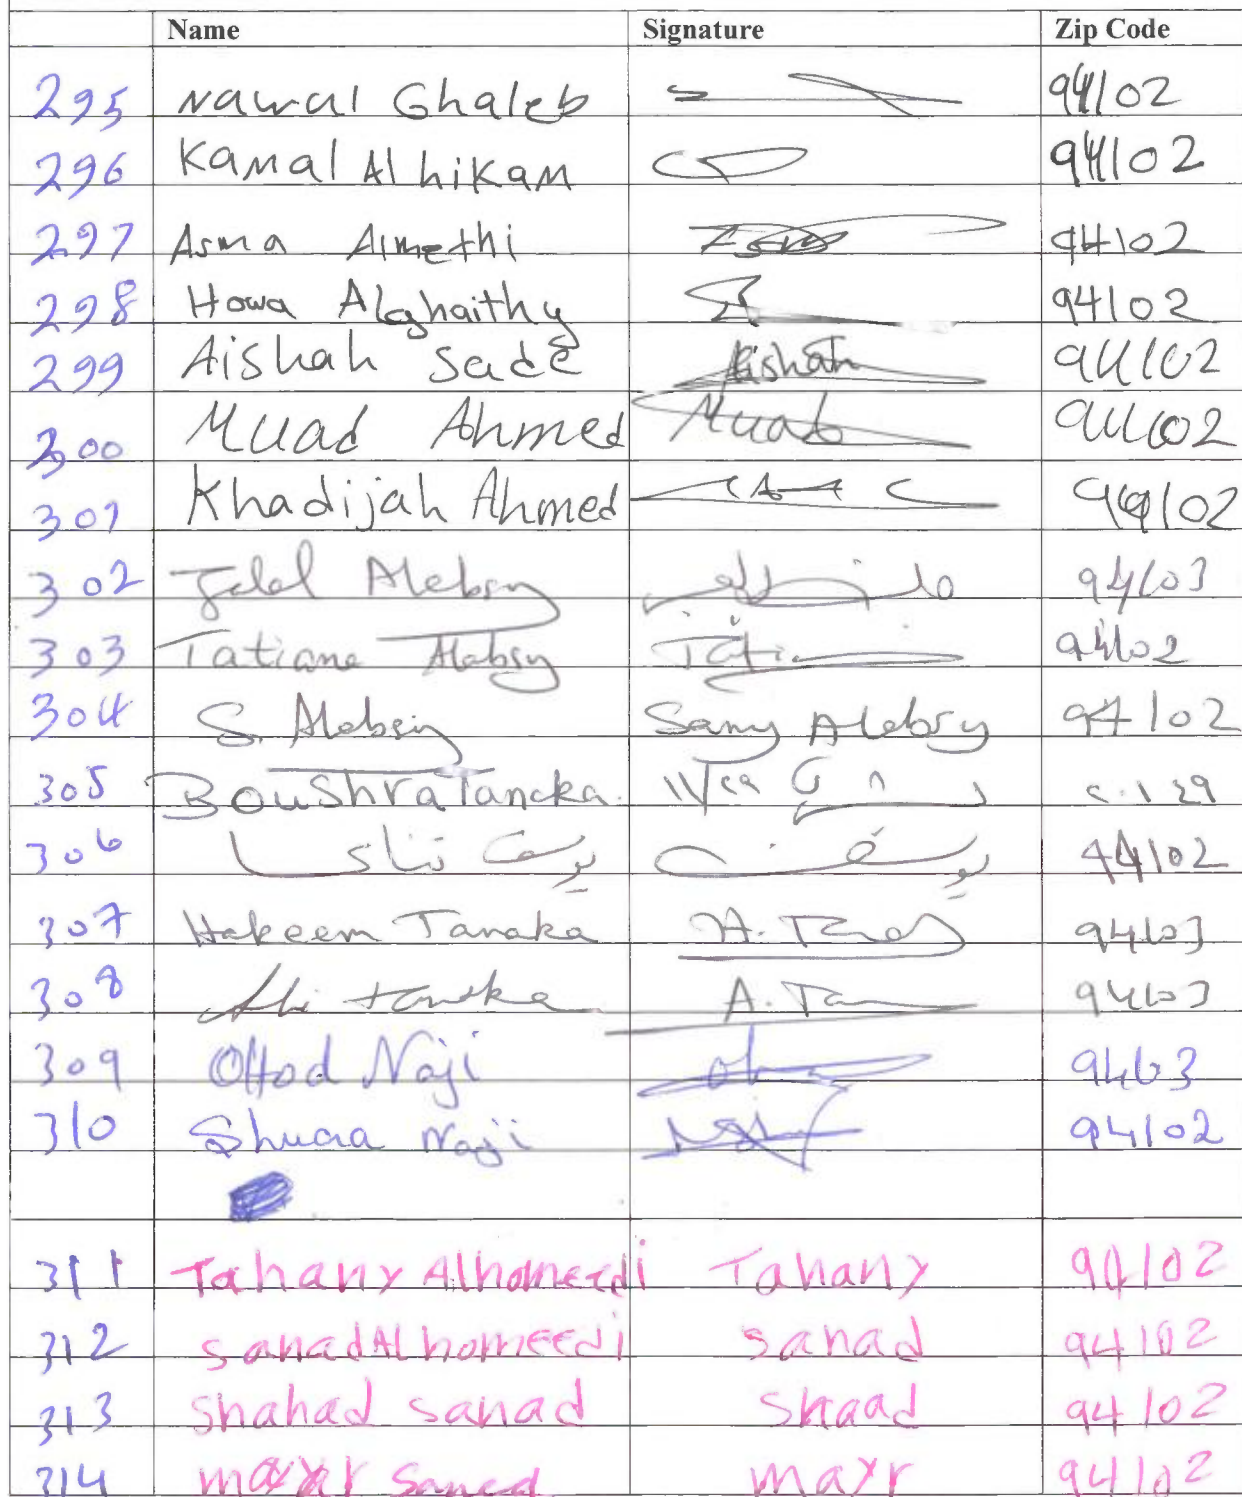 Name Signature Zip Code
295 Nawal Ghaleb 94102
296 Kamal Alhikam 94102
297 Asma Almethi 94102
298 Howa Alghaithy 94102
299 Aishah Sade Aishah 94102
300 Muad Ahmed Muad 94102
301 Khadijah Ahmed 94102
302 Jalal Alebsy 94103
303 Tatiane Alebsy Tati 94102
304 S. Alebsy Samy Alebsy 94102
305 Boushra Tanaka.
306 يوسف تناكا يوسف 94102
307 Hakeem Tanaka 94103
308 Ali tanaka A. Tan 94103
309 Ohod Naji oh 94103
310 Shuaa Naji 94102
311 Tahany Alhomeedi Tahany 94102
312 sanad Alhomeedi sanad 94102
313 shahad sanad Shaad 94102
314 sanad mayr 94102